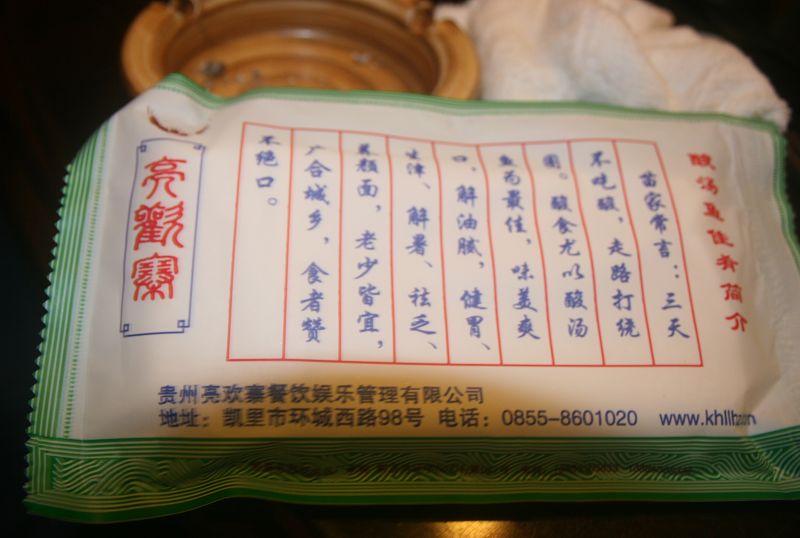 酸汤鱼佳肴简介
苗家常言：三天
不吃酸，走路打绕
圈。酸食尤以酸汤
鱼为最佳，味美爽
口、解油腻，健胃、
生津、解暑、祛乏、
美颜面，老少皆宜，
广合城乡，食者赞
不绝口。
亮歡寨
贵州亮欢寨餐饮娱乐管理有限公司
地址：凯里市环城西路98号 电话：0855-8601020